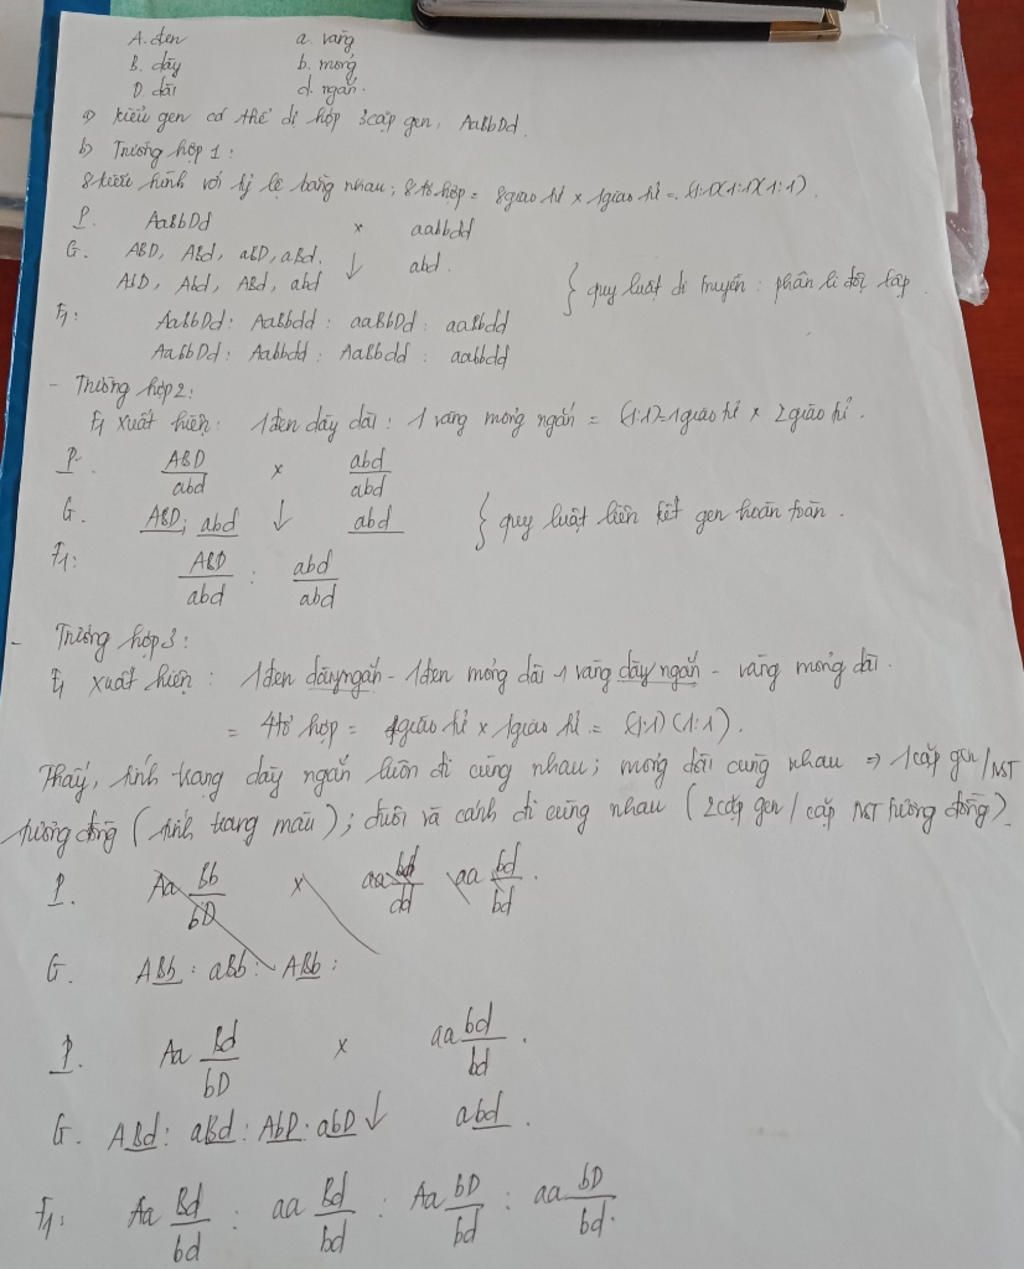 A. đen a. vàng
B. dày b. mỏng
D. dài d. ngắn.
a) kiểu gen cơ thể dị hợp 3 cặp gen, AaBbDd.
b) Trường hợp 1:
8 kiểu hình với tỷ lệ bằng nhau; 8 tổ hợp = 8 giao tử × 1 giao tử = (1:1)(1:1)(1:1).
P. AaBbDd × aabbdd
G. ABD, ABd, aBD, aBd. ↓ abd.
AbD, Abd, ABd, abd } quy luật di truyền: phân li độc lập.
F1: AaBbDd: AaBbdd: aaBbDd: aaBbdd
AaBbDd: Aabbdd: AaBbdd: aabbdd
- Trường hợp 2:
F1 xuất hiện: 1 đen dày dài: 1 vàng mỏng ngắn = (1:1) = 1 giao tử × 2 giao tử.
P. ABD/abd × abd/abd
G. ABD; abd ↓ abd } quy luật liên kết gen hoàn toàn.
F1: ABD/abd : abd/abd
- Trường hợp 3:
F1 xuất hiện: 1 đen dày ngắn - 1 đen mỏng dài - 1 vàng dày ngắn - vàng mỏng dài.
= 4 tổ hợp = 4 giao tử × 1 giao tử = (1:1)(1:1).
Thấy, tính trạng dày ngắn luôn đi cùng nhau; mỏng dài cùng nhau ⇒ 1 cặp gen/NST
tương đồng (tính trạng màu); đuôi và cánh đi cùng nhau (2 cặp gen/cặp NST tương đồng).
P. Aa Bb/bD × aa bd/dd aa bd/bd.
G. ABb: aBb: ABb:
P. Aa Bd/bD × aa bd/bd.
G. ABd: aBd: AbD: abD ↓ abd.
F1: Aa Bd/bd : aa Bd/bd : Aa bD/bd : aa bD/bd.